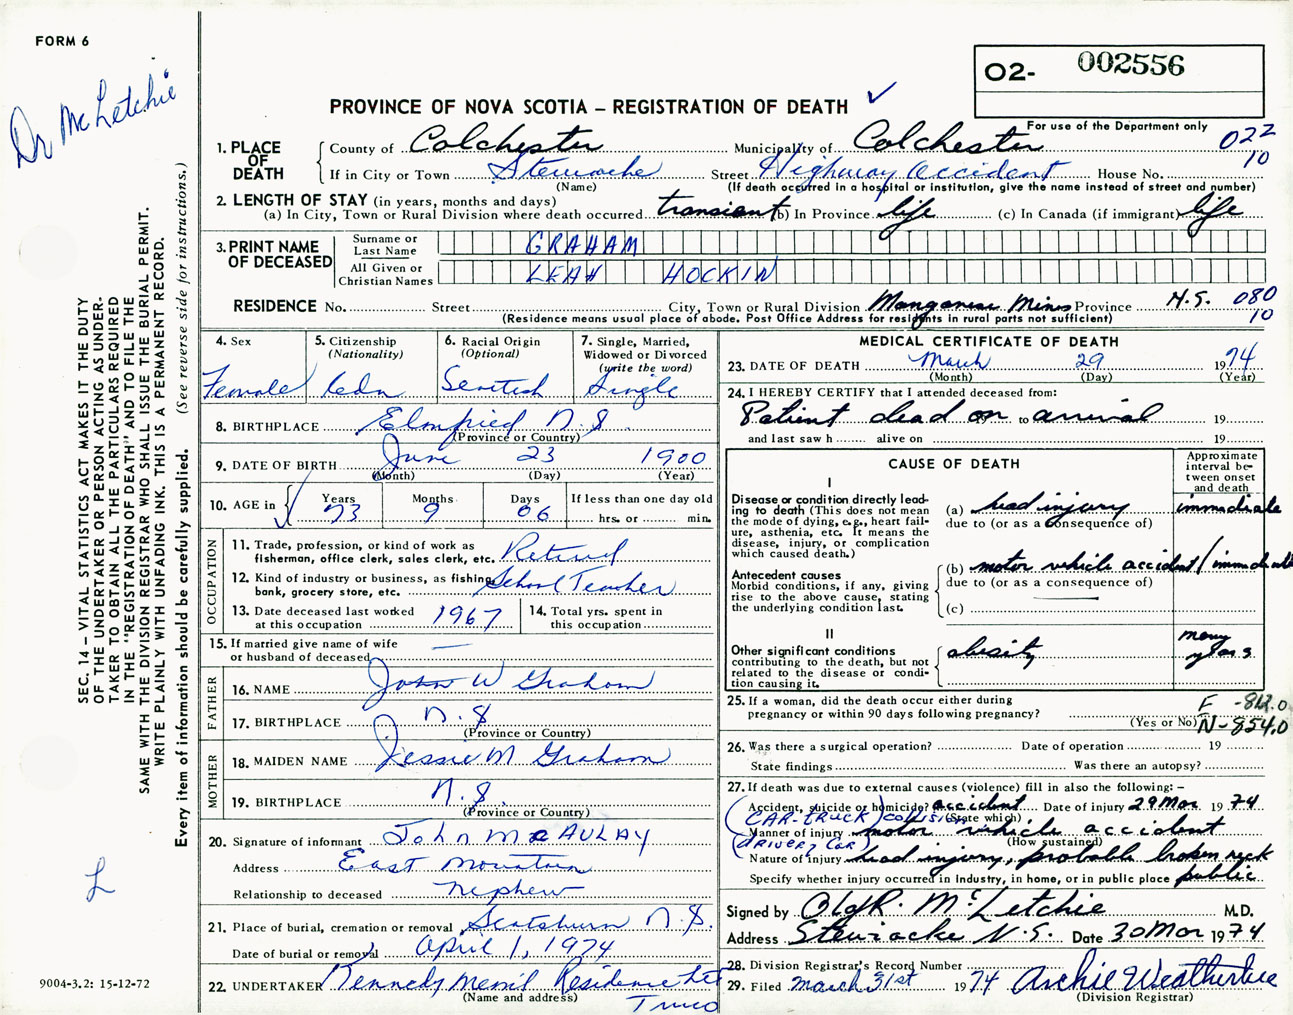 FORM 6
Dr McLetchie
O2- 002556
PROVINCE OF NOVA SCOTIA – REGISTRATION OF DEATH ✓
For use of the Department only
022
10
1. PLACE OF DEATH
County of Colchester Municipality of Colchester
If in City or Town Stewiacke Street Highway accident House No.
(Name) (If death occurred in a hospital or institution, give the name instead of street and number)
2. LENGTH OF STAY (in years, months and days)
(a) In City, Town or Rural Division where death occurred transient (b) In Province life (c) In Canada (if immigrant) life
3. PRINT NAME OF DECEASED
Surname or Last Name GRAHAM
All Given or Christian Names LEAH HOCKIN
RESIDENCE No. Street City, Town or Rural Division Manganese Mines Province N.S. 080
10
(Residence means usual place of abode. Post Office Address for residents in rural parts not sufficient)
4. Sex
Female
5. Citizenship
(Nationality)
Cdn
6. Racial Origin
(Optional)
Scottish
7. Single, Married,
Widowed or Divorced
(write the word)
Single
8. BIRTHPLACE Elmfield N.S.
(Province or Country)
9. DATE OF BIRTH June 23 1900
(Month) (Day) (Year)
10. AGE in Years Months Days If less than one day old
73 9 06 hrs. or min.
OCCUPATION
11. Trade, profession, or kind of work as
fisherman, office clerk, sales clerk, etc. Retired
12. Kind of industry or business, as fishing,
bank, grocery store, etc. School Teacher
13. Date deceased last worked
at this occupation 1967
14. Total yrs. spent in
this occupation
15. If married give name of wife
or husband of deceased —
FATHER
16. NAME John W Graham
17. BIRTHPLACE N.S
(Province or Country)
MOTHER
18. MAIDEN NAME Jessie M Graham
19. BIRTHPLACE N.S.
(Province or Country)
20. Signature of informant John McAulay
Address East Mountain
Relationship to deceased nephew
21. Place of burial, cremation or removal Scotsburn N.S.
Date of burial or removal April 1, 1974
22. UNDERTAKER Kennedy Meml Residence Ltd
(Name and address)
Truro
MEDICAL CERTIFICATE OF DEATH
23. DATE OF DEATH March 29 1974
(Month) (Day) (Year)
24. I HEREBY CERTIFY that I attended deceased from:
Patient dead on to arrival 19
and last saw h alive on 19
CAUSE OF DEATH
Approximate interval between onset and death
I
Disease or condition directly lead-
ing to death (This does not mean
the mode of dying, e.g., heart fail-
ure, asthenia, etc. It means the
disease, injury, or complication
which caused death.)
(a) head injury immediate
due to (or as a consequence of)
Antecedent causes
Morbid conditions, if any, giving
rise to the above cause, stating
the underlying condition last.
(b) motor vehicle accident / immediate
due to (or as a consequence of)
(c)
II
Other significant conditions
contributing to the death, but not
related to the disease or condi-
tion causing it.
obesity many years
25. If a woman, did the death occur either during
pregnancy or within 90 days following pregnancy?
(Yes or No)
E -812.0
N-854.0
26. Was there a surgical operation? Date of operation 19
State findings Was there an autopsy?
27. If death was due to external causes (violence) fill in also the following: –
Accident, suicide or homicide? accident Date of injury 29 Mar 1974
(State which)
(CAR-TRUCK) collision
Manner of injury motor vehicle accident
(How sustained)
(driver, car)
Nature of injury head injury, probable broken neck
Specify whether injury occurred in industry, in home, or in public place public
Signed by R. McLetchie M.D.
Address Stewiacke N.S. Date 30 Mar 1974
28. Division Registrar's Record Number
29. Filed March 31st 1974 Archie Weatherbee
(Division Registrar)
SEC. 14 – VITAL STATISTICS ACT MAKES IT THE DUTY
OF THE UNDERTAKER OR PERSON ACTING AS UNDER-
TAKER TO OBTAIN ALL THE PARTICULARS REQUIRED
IN THE "REGISTRATION OF DEATH" AND TO FILE THE
SAME WITH THE DIVISION REGISTRAR WHO SHALL ISSUE THE BURIAL PERMIT.
WRITE PLAINLY WITH UNFADING INK. THIS IS A PERMANENT RECORD.
Every item of information should be carefully supplied. (See reverse side for instructions.)
L
9004-3.2: 15-12-72